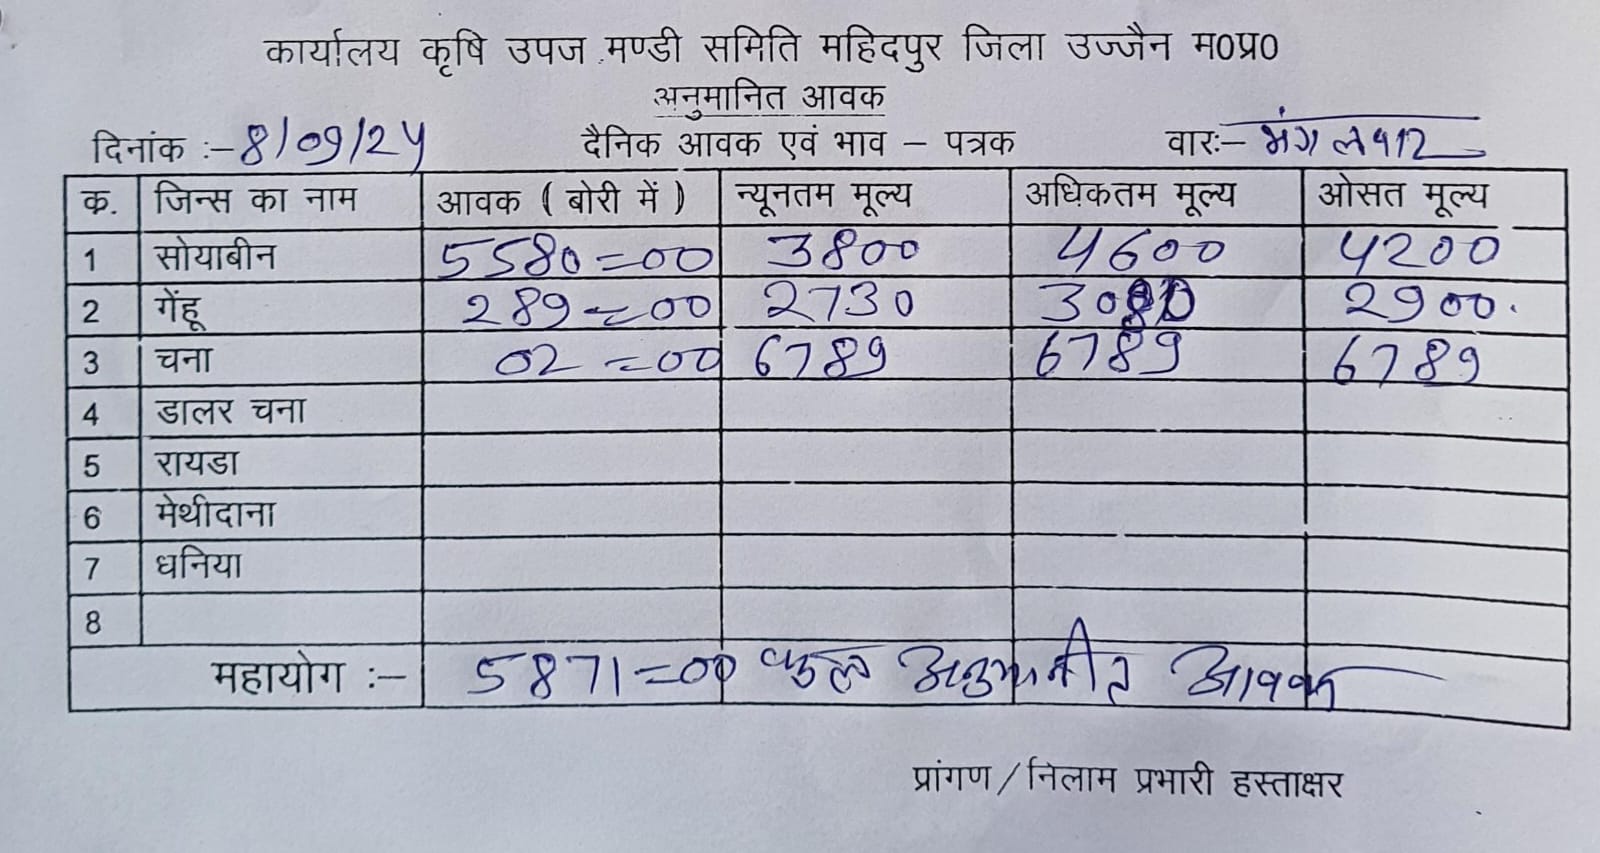 कार्यालय कृषि उपज मण्डी समिति महिदपुर जिला उज्जैन म0प्र0
अनुमानित आवक
दिनांक :- 8/09/24 दैनिक आवक एवं भाव – पत्रक वारः– मंगलवार
क. जिन्स का नाम आवक ( बोरी में ) न्यूनतम मूल्य अधिकतम मूल्य ओसत मूल्य
1 सोयाबीन 5580=00 3800 4600 4200
2 गेंहू 289=00 2730 2900.
3 चना 02=00 6789 6789 6789
4 डालर चना
5 रायडा
6 मेथीदाना
7 धनिया
8
महायोग :– 5871=00 कुल अनुमानीत आवक
प्रांगण / निलाम प्रभारी हस्ताक्षर